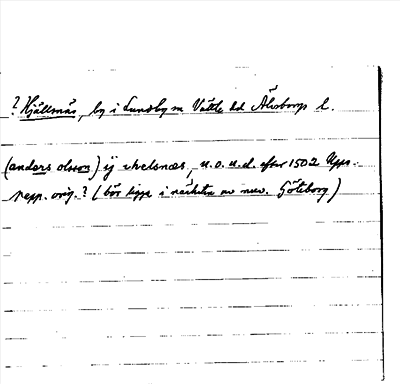 ? Hjällsnäs, by i Lundby sn Vättle hd Älvsborgs l.
(anders olsson) ij ihelsnæs, u.o.u.d. efter 1502 Upps.
papp. orig. ? (bör ligga i närheten av nuv. Göteborg)